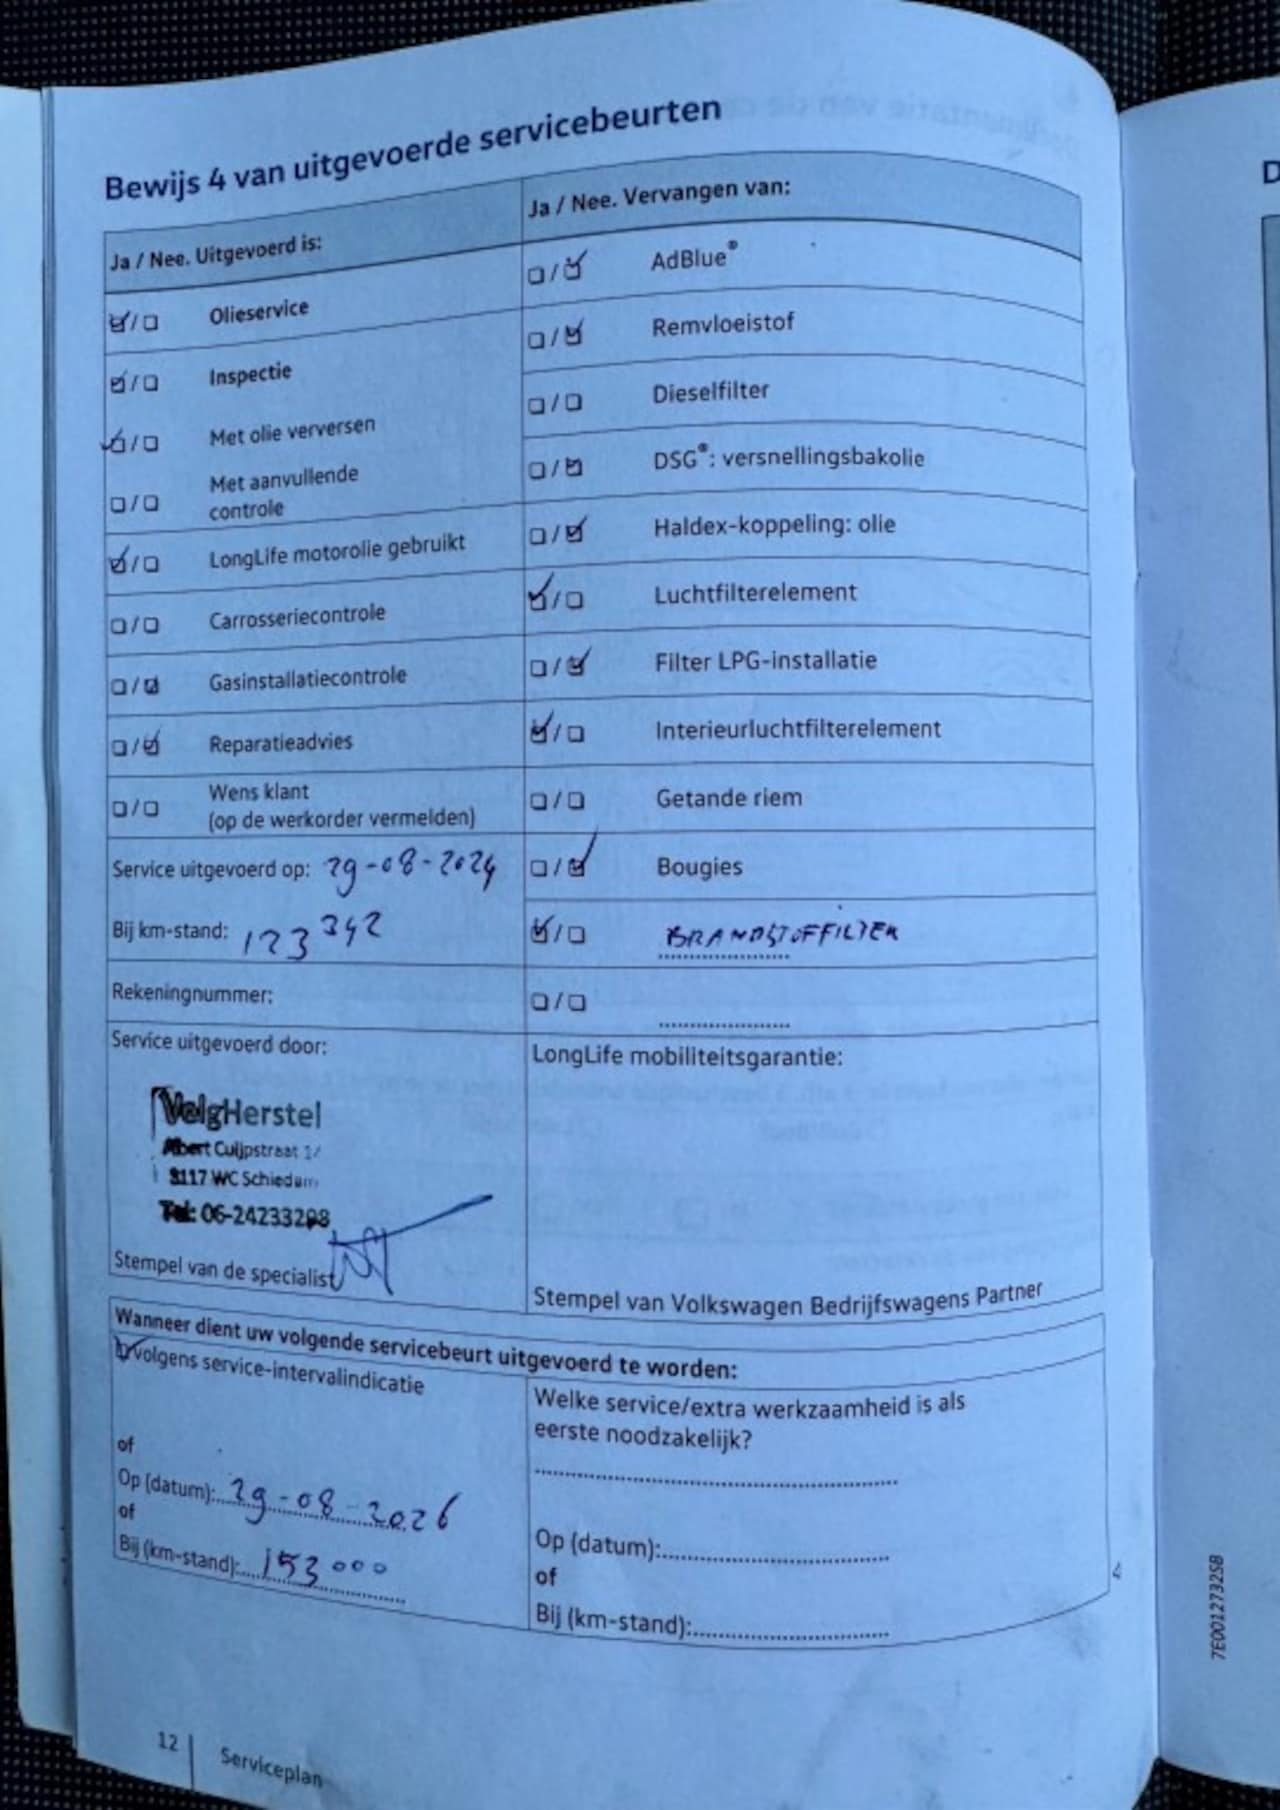 Bewijs 4 van uitgevoerde servicebeurten
Ja / Nee. Uitgevoerd is:
☑/☐ Olieservice
☑/☐ Inspectie
☑/☐ Met olie verversen
☐/☐ Met aanvullende
controle
☑/☐ LongLife motorolie gebruikt
☐/☐ Carrosseriecontrole
☐/☑ Gasinstallatiecontrole
☐/☑ Reparatieadvies
☐/☐ Wens klant
(op de werkorder vermelden)
Service uitgevoerd op: 29-08-2024
Bij km-stand: 123342
Rekeningnummer:
Service uitgevoerd door:
VelgHerstel
Albert Cuijpstraat
3117 WC Schiedam
Tel: 06-24233298
Stempel van de specialist
Ja / Nee. Vervangen van:
☐/☑ AdBlue®
☐/☑ Remvloeistof
☐/☐ Dieselfilter
☐/☑ DSG®: versnellingsbakolie
☐/☑ Haldex-koppeling: olie
☑/☐ Luchtfilterelement
☐/☑ Filter LPG-installatie
☑/☐ Interieurluchtfilterelement
☐/☐ Getande riem
☐/☑ Bougies
☑/☐ BRANDSTOFFILTER
☐/☐
LongLife mobiliteitsgarantie:
Stempel van Volkswagen Bedrijfswagens Partner
Wanneer dient uw volgende servicebeurt uitgevoerd te worden:
☑ volgens service-intervalindicatie
of
Op (datum): 29-08-2026
of
Bij (km-stand): 153000
Welke service/extra werkzaamheid is als
eerste noodzakelijk?
Op (datum):
of
Bij (km-stand):
12 | Serviceplan
7E0012732SB
D